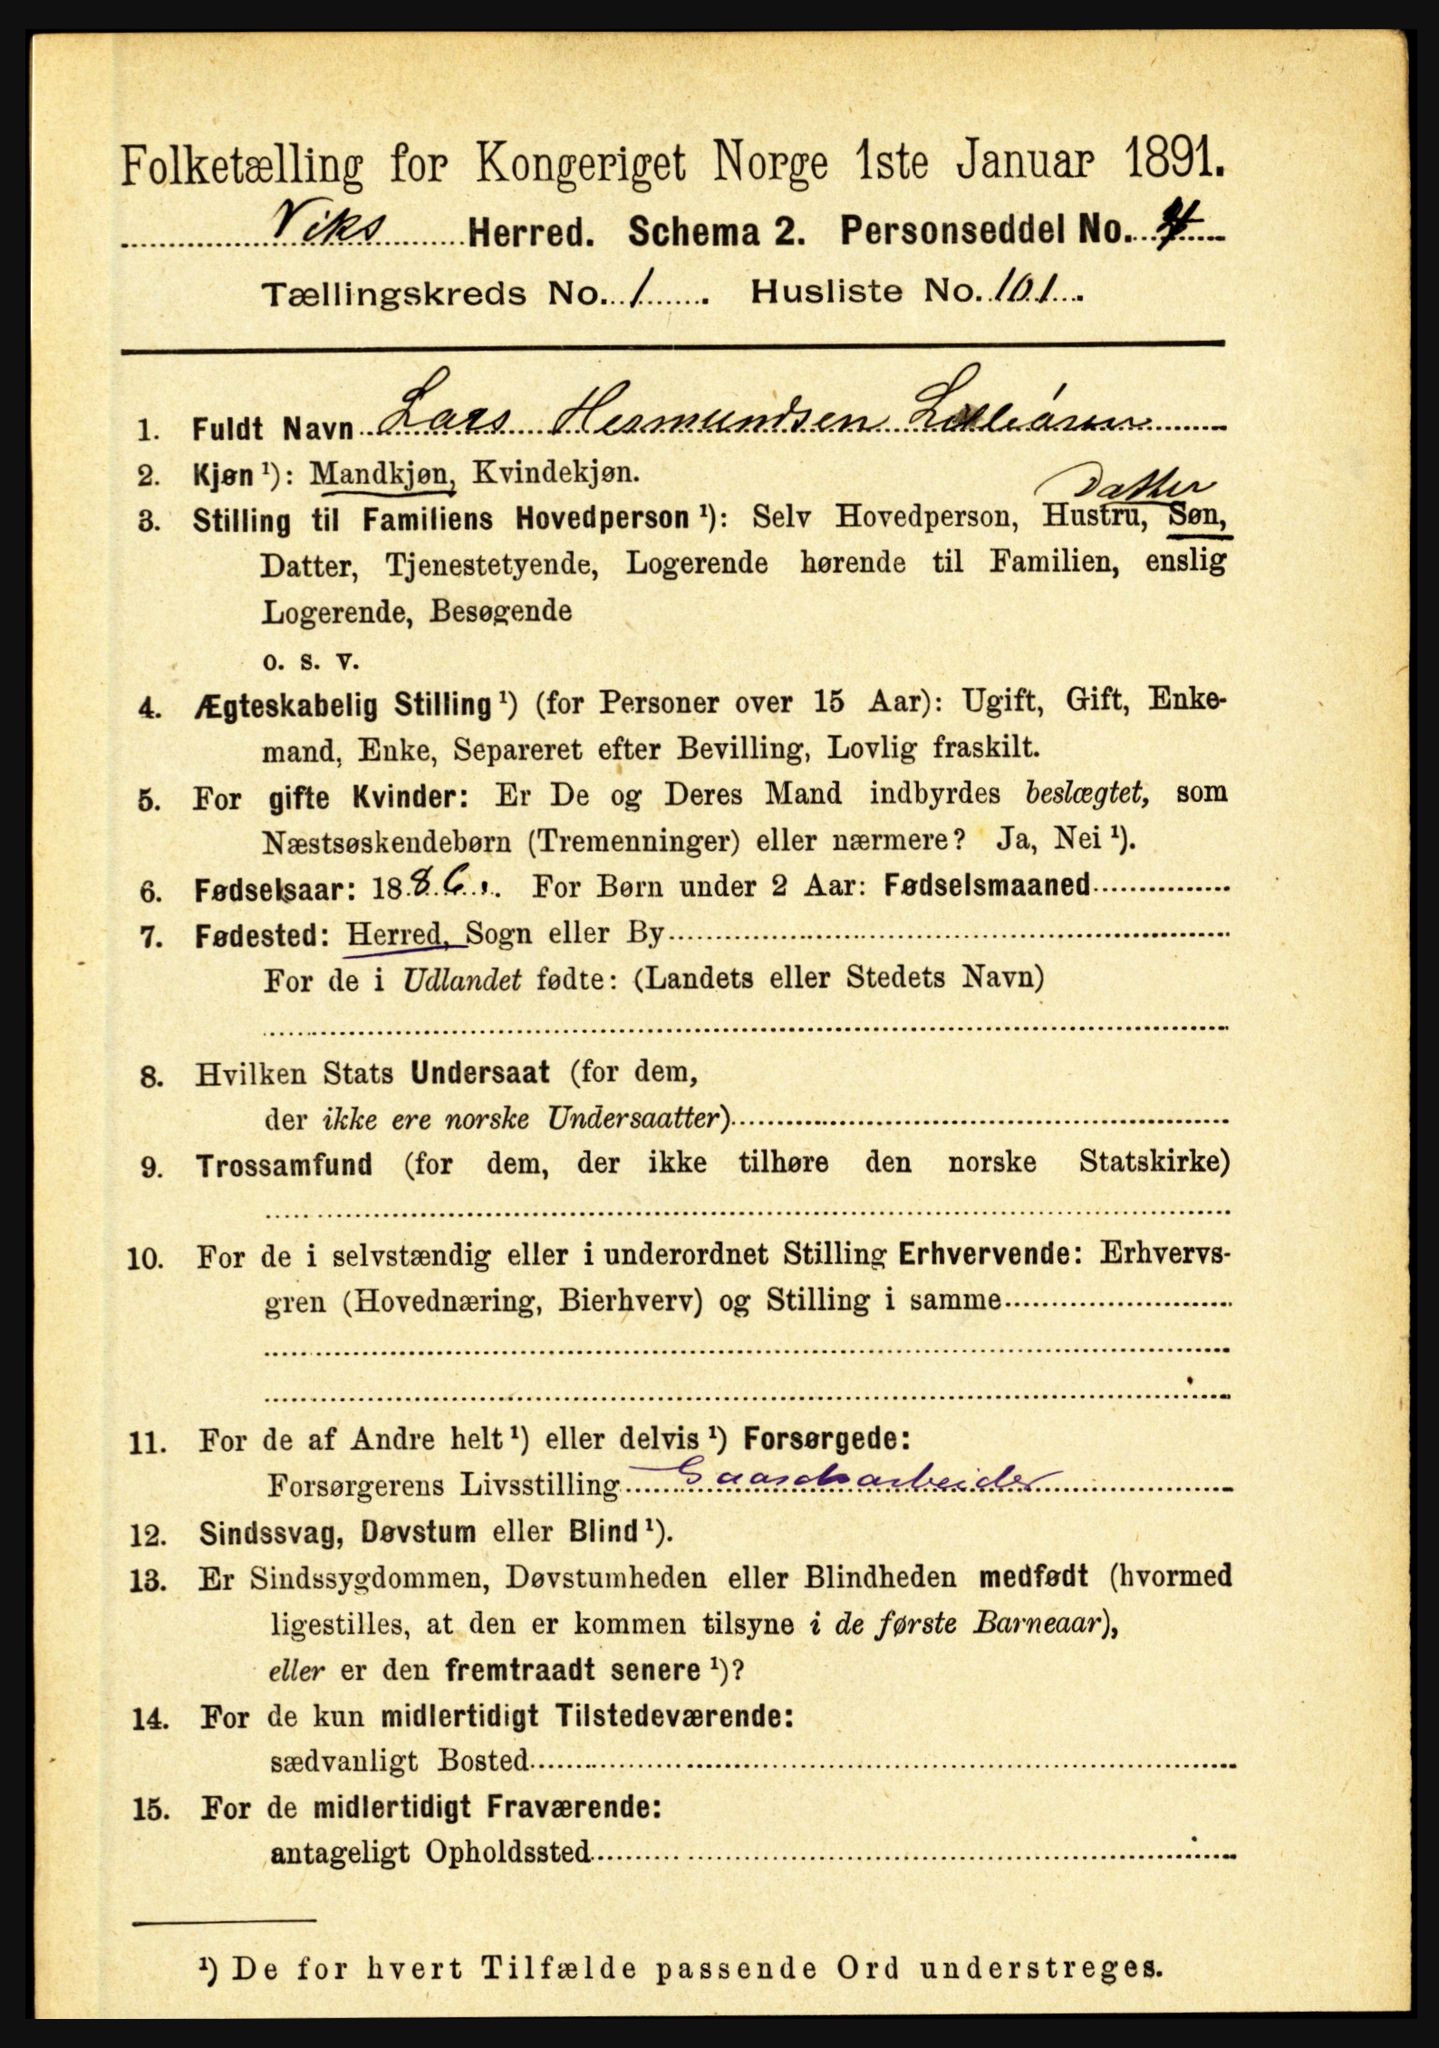 Folketælling for Kongeriget Norge 1ste Januar 1891.
Viks Herred. Schema 2. Personseddel No. 4
Tællingskreds No. 1. Husliste No. 101.
1. Fuldt Navn Lars Hermundsen
2. Kjøn ¹): Mandkjøn, Kvindekjøn.
Datter
3. Stilling til Familiens Hovedperson ¹): Selv Hovedperson, Hustru, Søn,
Datter, Tjenestetyende, Logerende hørende til Familien, enslig
Logerende, Besøgende
o. s. v.
4. Ægteskabelig Stilling ¹) (for Personer over 15 Aar): Ugift, Gift, Enke-
mand, Enke, Separeret efter Bevilling, Lovlig fraskilt.
5. For gifte Kvinder: Er De og Deres Mand indbyrdes beslægtet, som
Næstsøskendebørn (Tremenninger) eller nærmere? Ja, Nei ¹).
6. Fødselsaar: 1886. For Børn under 2 Aar: Fødselsmaaned
7. Fødested: Herred, Sogn eller By
For de i Udlandet fødte: (Landets eller Stedets Navn)
8. Hvilken Stats Undersaat (for dem,
der ikke ere norske Undersaatter)
9. Trossamfund (for dem, der ikke tilhøre den norske Statskirke)
10. For de i selvstændig eller i underordnet Stilling Erhvervende: Erhvervs-
gren (Hovednæring, Bierhverv) og Stilling i samme
11. For de af Andre helt ¹) eller delvis ¹) Forsørgede:
Forsørgerens Livsstilling Gaardsarbeider
12. Sindssvag, Døvstum eller Blind ¹).
13. Er Sindssygdommen, Døvstumheden eller Blindheden medfødt (hvormed
ligestilles, at den er kommen tilsyne i de første Barneaar),
eller er den fremtraadt senere ¹)?
14. For de kun midlertidigt Tilstedeværende:
sædvanligt Bosted
15. For de midlertidigt Fraværende:
antageligt Opholdssted
¹) De for hvert Tilfælde passende Ord understreges.